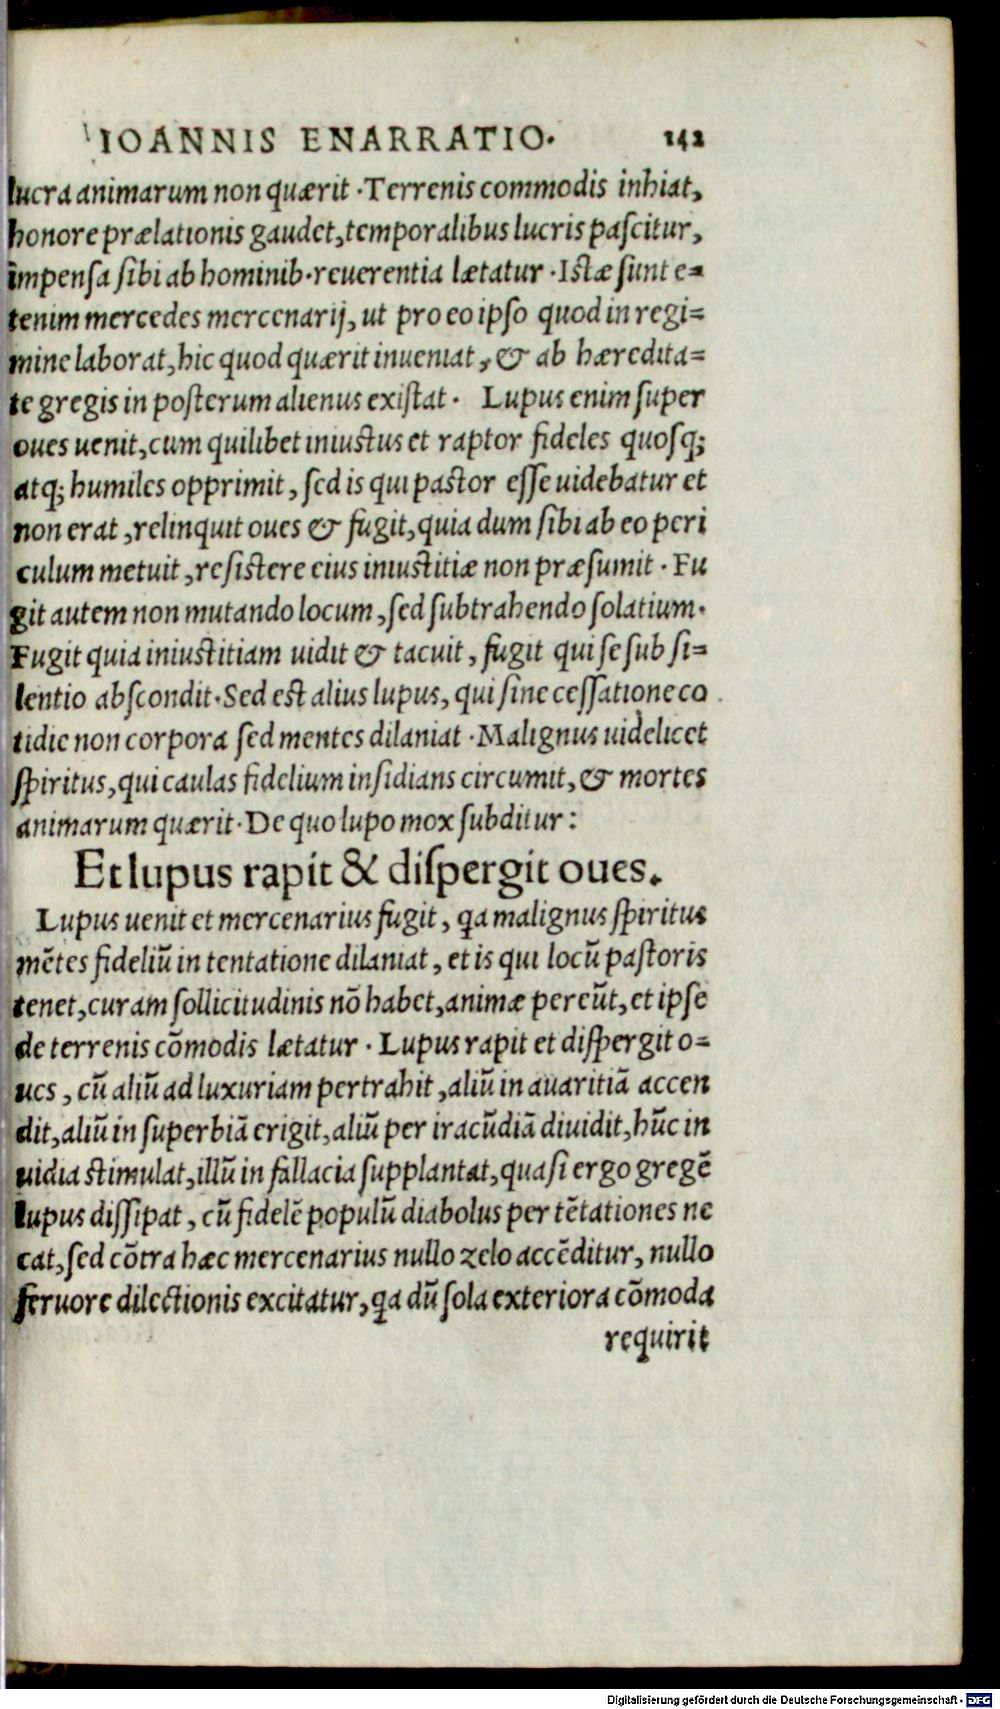 IOANNIS ENARRATIO. 142
lucra animarum non quærit. Terrenis commodis inhiat,
honore prælationis gaudet, temporalibus lucris paſcitur,
impenſa ſibi ab hominib. reuerentia lætatur. Iſtæ ſunt e=
tenim mercedes mercenarij, ut pro eo ipſo quod in regi=
mine laborat, hic quod quærit inueniat, & ab hæredita=
te gregis in poſterum alienus exiſtat. Lupus enim ſuper
oues uenit, cum quilibet iniuſtus et raptor fideles quoſq;
atq; humiles opprimit, ſed is qui paſtor eſſe uidebatur et
non erat, relinquit oues & fugit, quia dum ſibi ab eo peri
culum metuit, reſiſtere eius iniuſtitiæ non præſumit. Fu
git autem non mutando locum, ſed ſubtrahendo ſolatium.
Fugit quia iniuſtitiam uidit & tacuit, fugit qui ſe ſub ſi=
lentio abſcondit. Sed eſt alius lupus, qui ſine ceſſatione co
tidie non corpora ſed mentes dilaniat. Malignus uidelicet
ſpiritus, qui caulas fidelium inſidians circumit, & mortes
animarum quærit. De quo lupo mox ſubditur:
Et lupus rapit & diſpergit oues.
Lupus uenit et mercenarius fugit, qa malignus ſpiritus
mētes fideliū in tentatione dilaniat, et is qui locū paſtoris
tenet, curam ſollicitudinis nō habet, animæ pereūt, et ipſe
de terrenis cōmodis lætatur. Lupus rapit et diſpergit o=
ues, cū aliū ad luxuriam pertrahit, aliū in auaritiā accen
dit, aliū in ſuperbiā erigit, aliū per iracūdiā diuidit, hūc in
uidia ſtimulat, illū in fallacia ſupplantat, quaſi ergo gregē
lupus diſſipat, cū fidelē populū diabolus per tētationes ne
cat, ſed cōtra hæc mercenarius nullo zelo accēditur, nullo
feruore dilectionis excitatur, qa dū ſola exteriora cōmoda
requirit
Digitalisierung gefördert durch die Deutsche Forschungsgemeinschaft - DFG